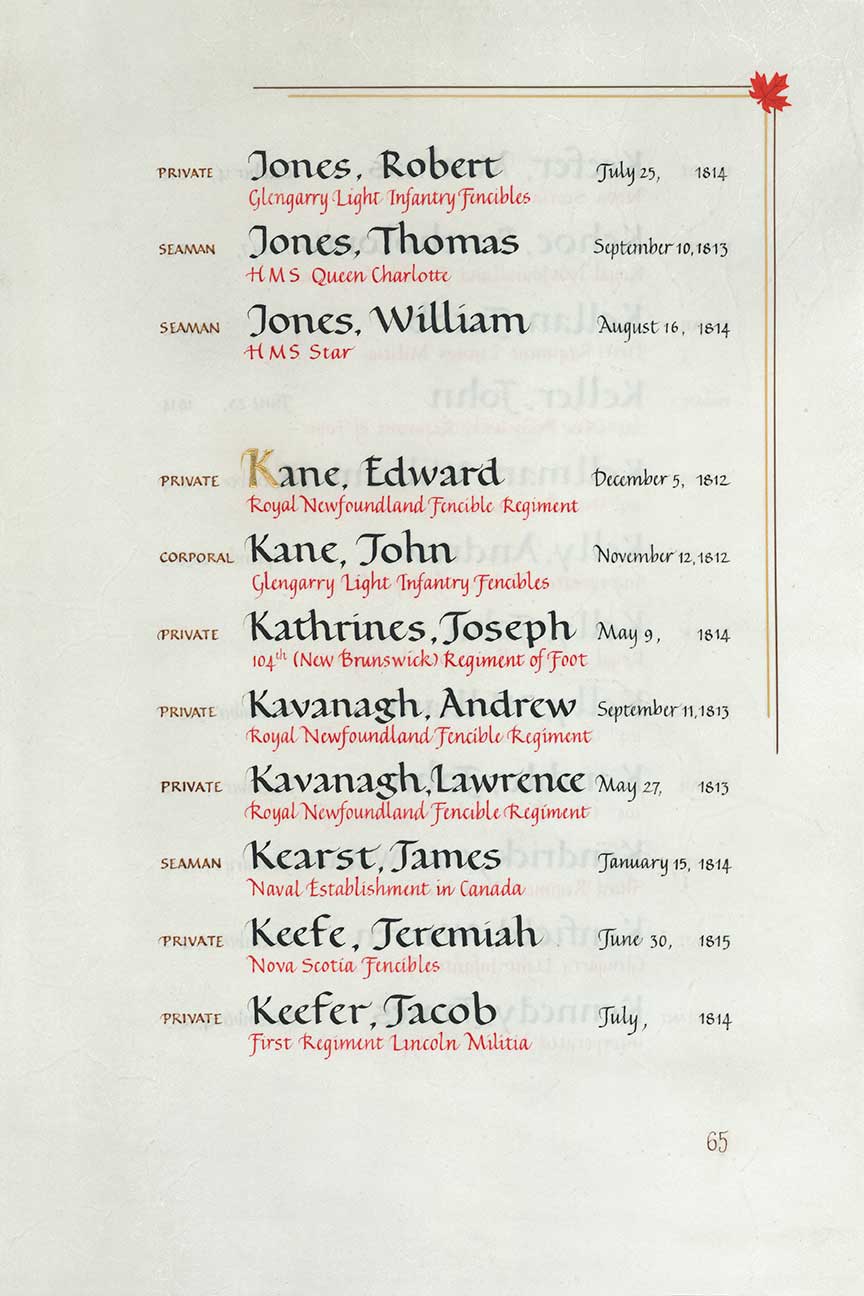 PRIVATE Jones, Robert July 25, 1814
Glengarry Light Infantry Fencibles
SEAMAN Jones, Thomas September 10, 1813
HMS Queen Charlotte
SEAMAN Jones, William August 16, 1814
HMS Star
PRIVATE Kane, Edward December 5, 1812
Royal Newfoundland Fencible Regiment
CORPORAL Kane, John November 12, 1812
Glengarry Light Infantry Fencibles
PRIVATE Kathrines, Joseph May 9, 1814
104th (New Brunswick) Regiment of Foot
PRIVATE Kavanagh, Andrew September 11, 1813
Royal Newfoundland Fencible Regiment
PRIVATE Kavanagh, Lawrence May 27, 1813
Royal Newfoundland Fencible Regiment
SEAMAN Kearst, James January 15, 1814
Naval Establishment in Canada
PRIVATE Keefe, Jeremiah June 30, 1815
Nova Scotia Fencibles
PRIVATE Keefer, Jacob July, 1814
First Regiment Lincoln Militia
65